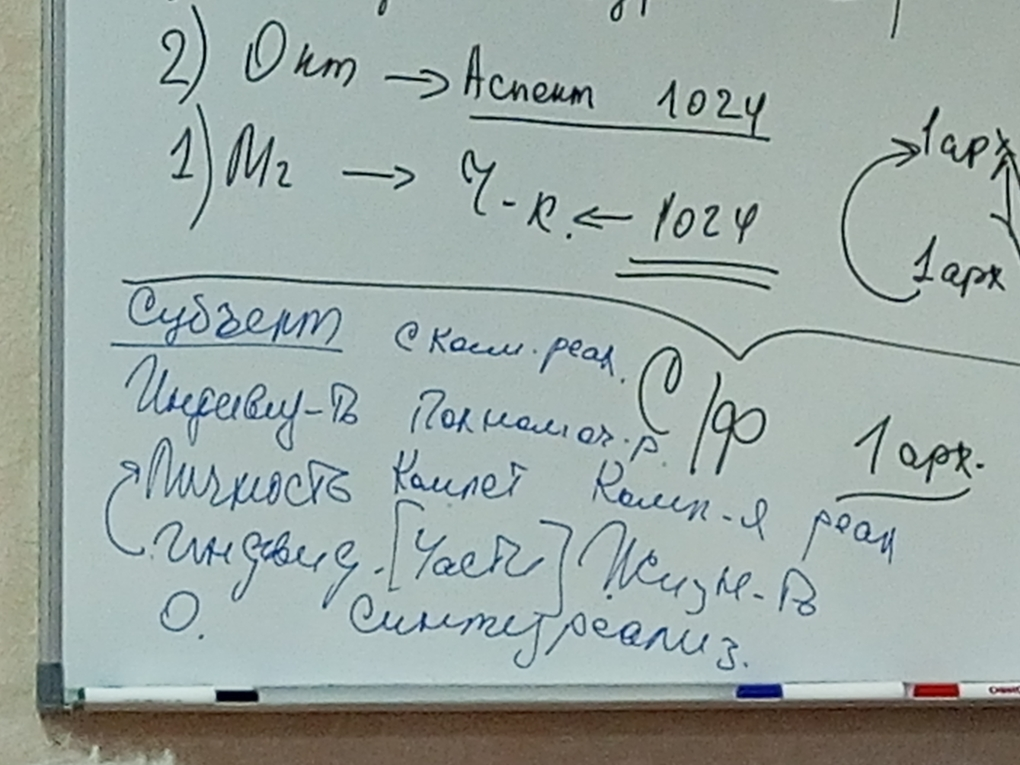 2) Окт → Аспект 1024
1) Мг → Ч-к. ← 1024
1 арх
1 арх
Субъект С Комп. реал.
С/Ф 1 арх.
Индивид-ть Полномоч. р.
Личность Компет Комп-я реал
Индивид. [Части] Жизн-ть
О. Синтезреализ.